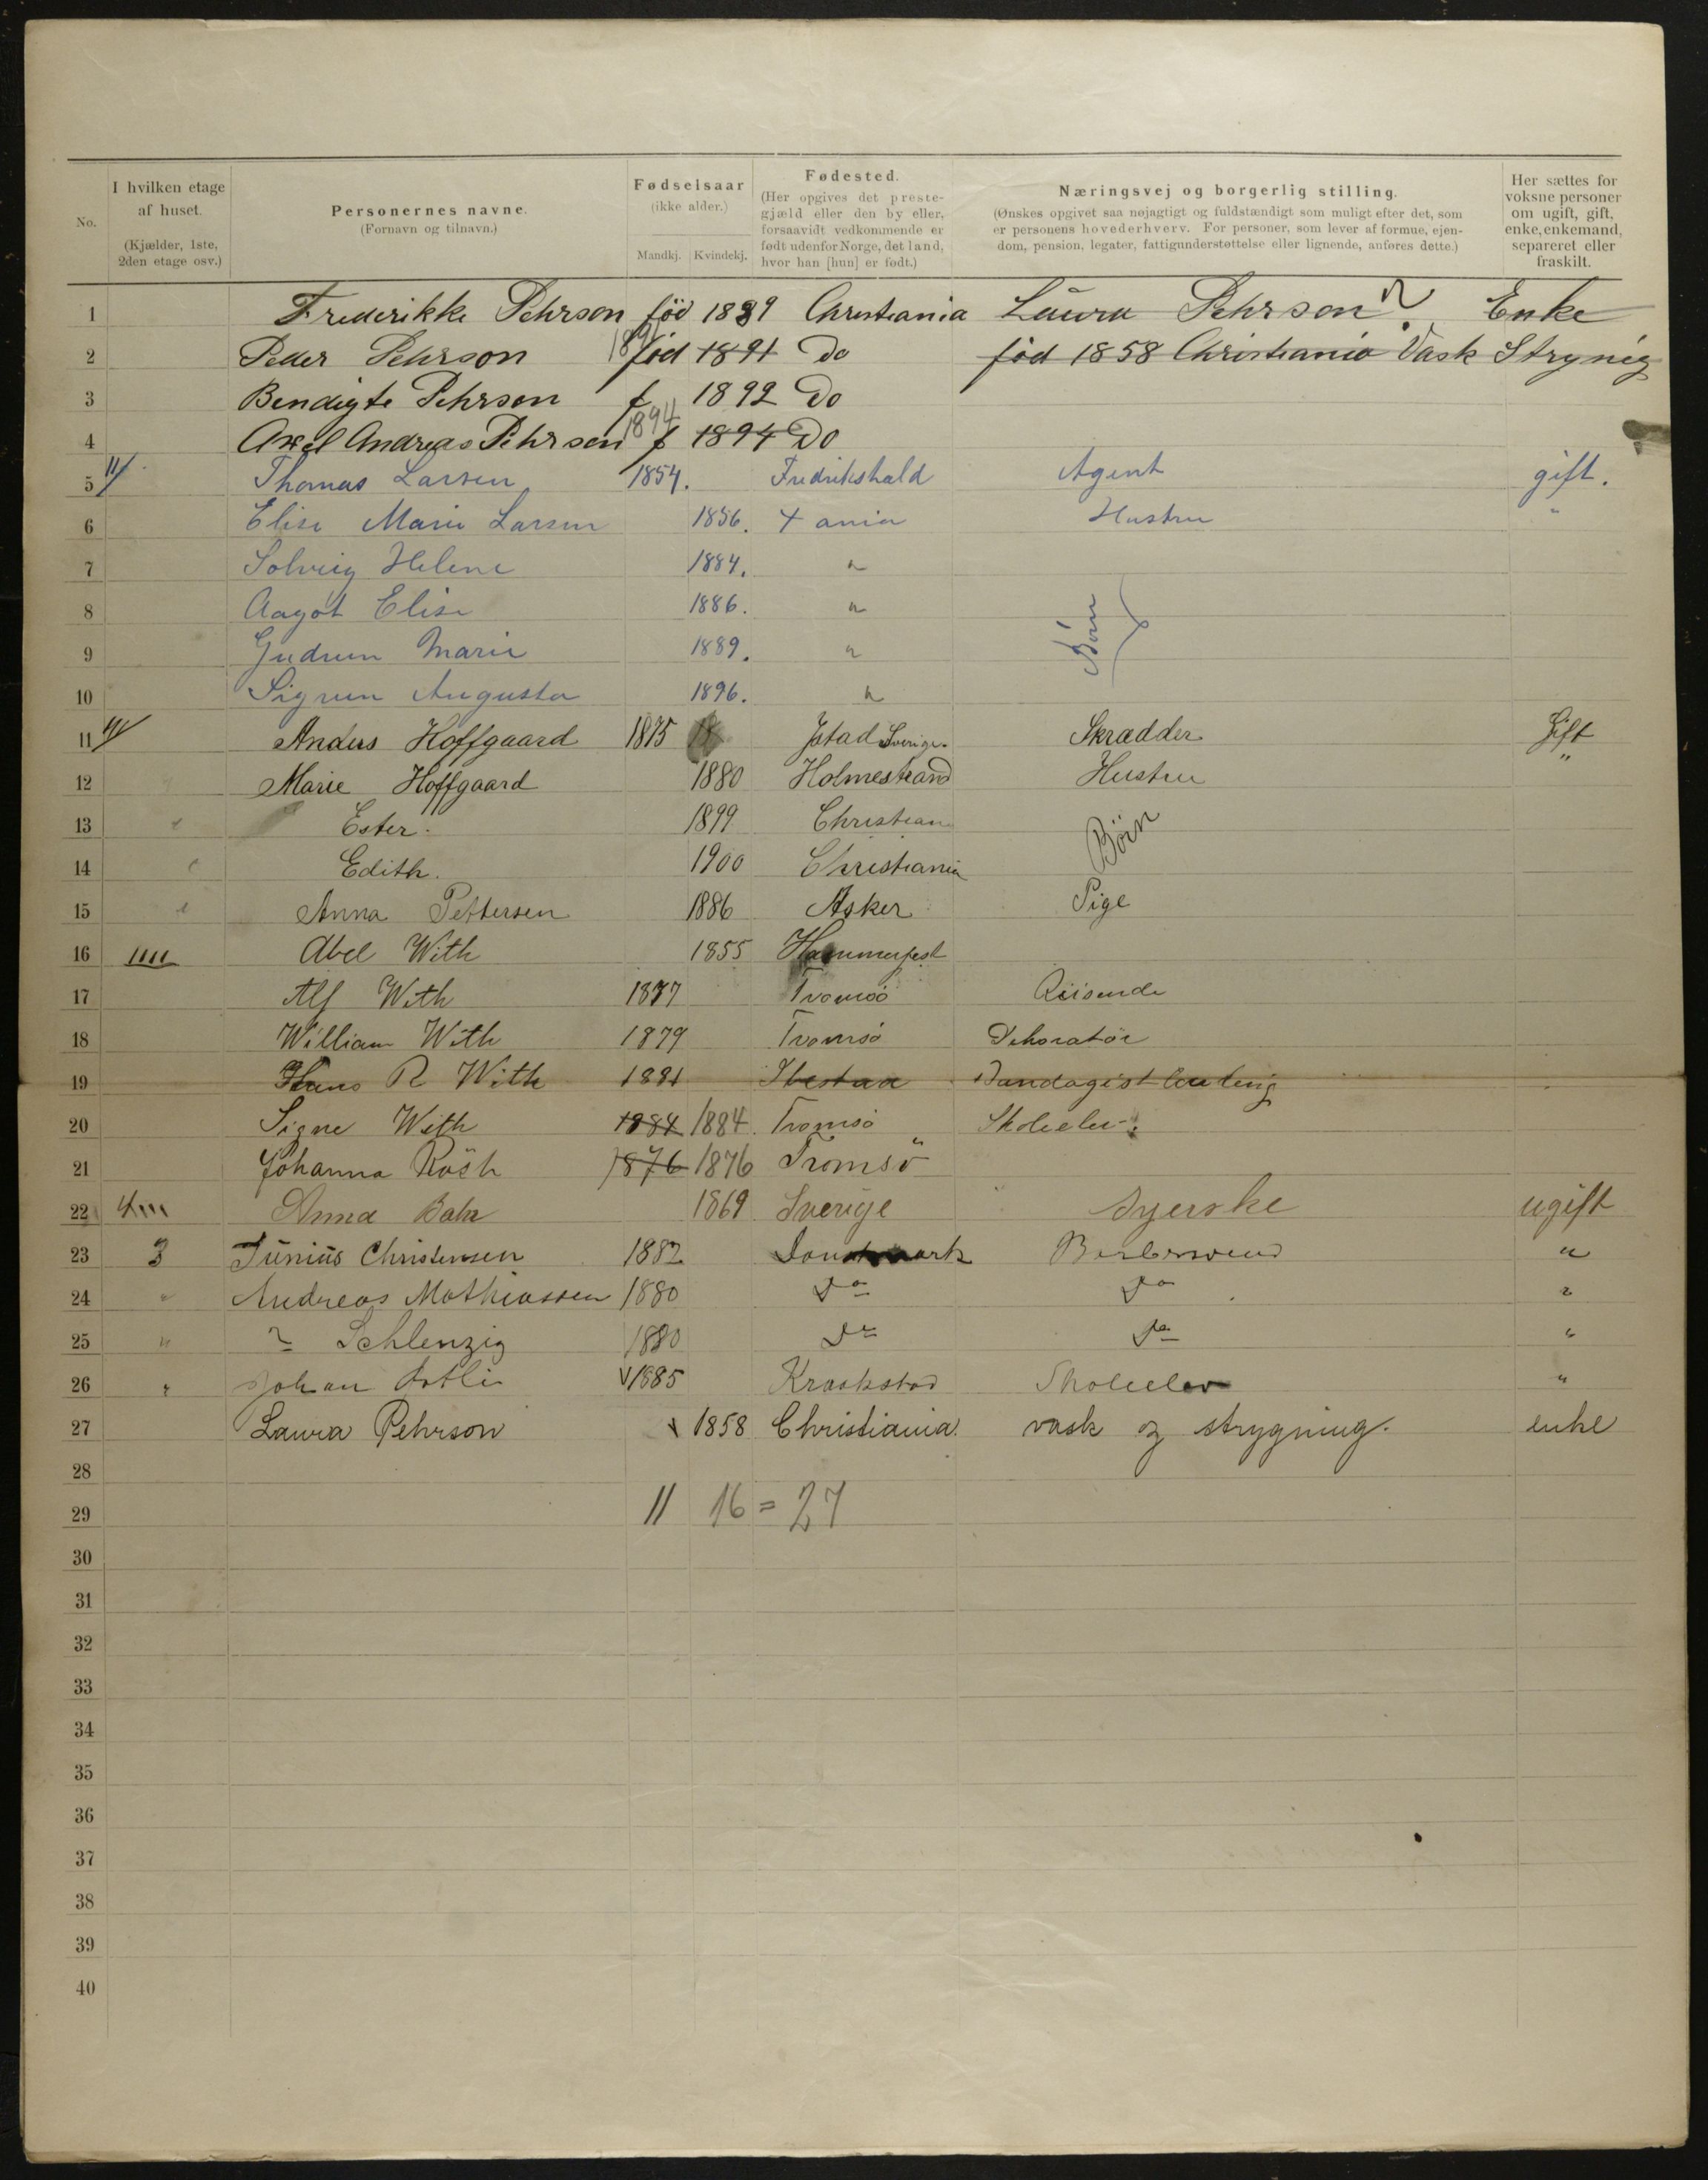 No. I hvilken etage af huset. (Kjælder, 1ste, 2den etage osv.) Personernes navne. (Fornavn og tilnavn.) Fødselsaar (ikke alder.) Mandkj. Kvindekj. Fødested. (Her opgives det prestegjæld eller den by eller, forsaavidt vedkommende er født udenfor Norge, det land, hvor han [hun] er født.) Næringsvej og borgerlig stilling. (Ønskes opgivet saa nøjagtigt og fuldstændigt som muligt efter det, som er personens hovederhverv. For personer, som lever af formue, ejendom, pension, legater, fattigunderstøttelse eller lignende, anføres dette.) Her sættes for voksne personer om ugift, gift, enke, enkemand, separeret eller fraskilt.
1 Frederikke Pehrson fød 1889 Christiania Laura Pehrson Enke
2 Peder Pehrson 1891 fød 1891 Do fød 1858 Christiania Vask Strynig
3 Bendigte Pehrson f 1892 Do
4 Axel Andreas Pehrson 1894 f 1894 Do
5 II Thomas Larsen 1854. Fredrikshald Agent gift.
6 Elise Marie Larsen 1856. Xania Hustru "
7 Solveig Helene 1884. "
8 Aagot Elise 1886. " Børn
9 Gudrun Marie 1889. "
10 Sigrun Augusta 1896. "
11 III Anders Hoffgaard 1875 18 Jstad Sverige. Skrædder Gift
12 " Marie Hoffgaard 1880 Holmestrand Hustru "
13 " Ester. 1899 Christian Børn
14 " Edith. 1900 Christiania
15 " Anna Pettersen 1886 Asker Pige
16 IIII Abel With 1855 Hammerfest
17 Alf With 1877 Tromsö Reisende
18 William With 1879 Tromsö Dekoratör
19 Hans R With 1881 Ibestad Bandagistlærling
20 Signe With 1884 1884. Tromsö Skoleelev.
21 Johanna Rösh 1876 1876 Tromsö
22 Anna Bahr 1869 Sverige Syerske ugift
23 3 Junius Christensen 1882 Danmark Barbersvend "
24 " Andreas Mathiassen 1880 Do Do "
25 " ~ Schlenzig 1880 Do Do "
26 " Johan 1885 Kraakstad Skoleelev "
27 Laura Pehrson 1858 Christiania vask og strygning. enke
28
29 11 16 = 27
30
31
32
33
34
35
36
37
38
39
40